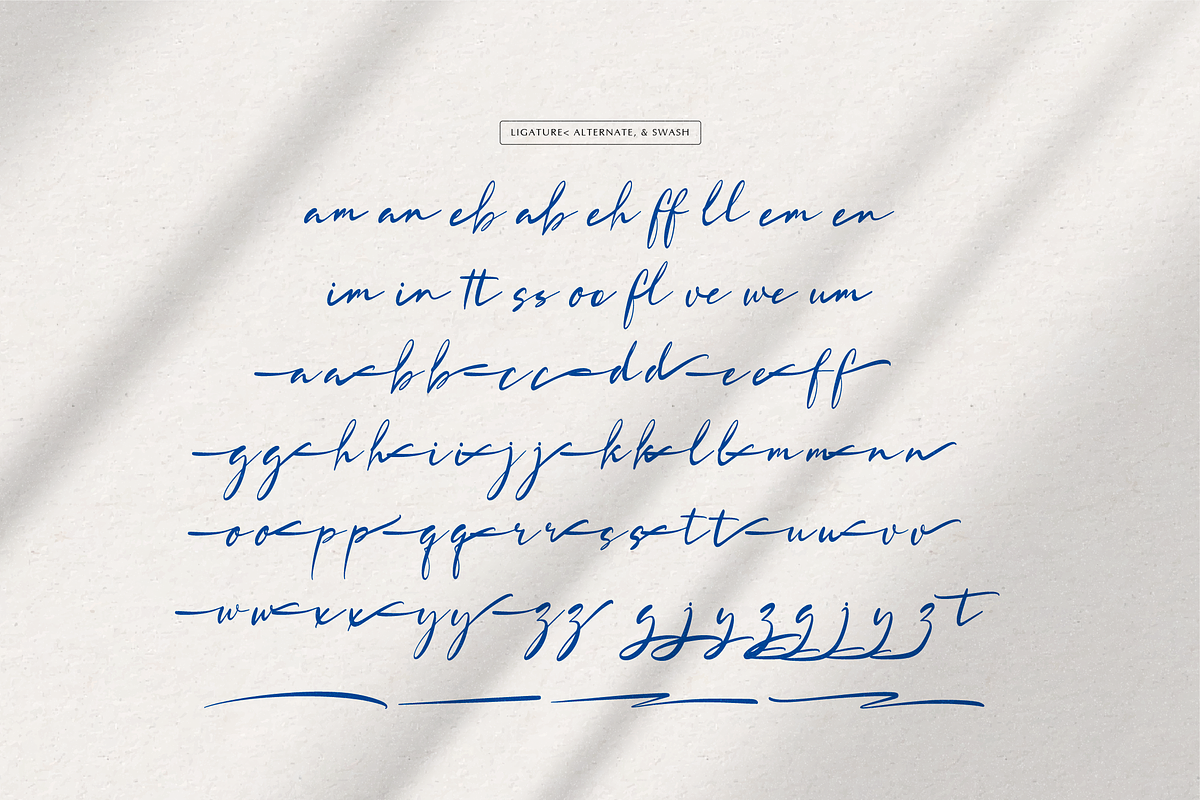 LIGATURE< ALTERNATE, & SWASH
am an eb ab eh ff ll em en
im in tt ss oo fl ve we um
aa bb cc dd ee ff
gg hh ii jj kk ll mm nn
oo pp qq rr ss tt uu vv
ww xx yy zz g j y z g j y z t